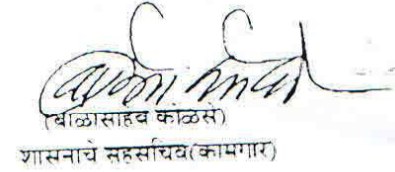 (बाळासाहेब कोळसे)
शासनाचे सहसचिव(कामगार)